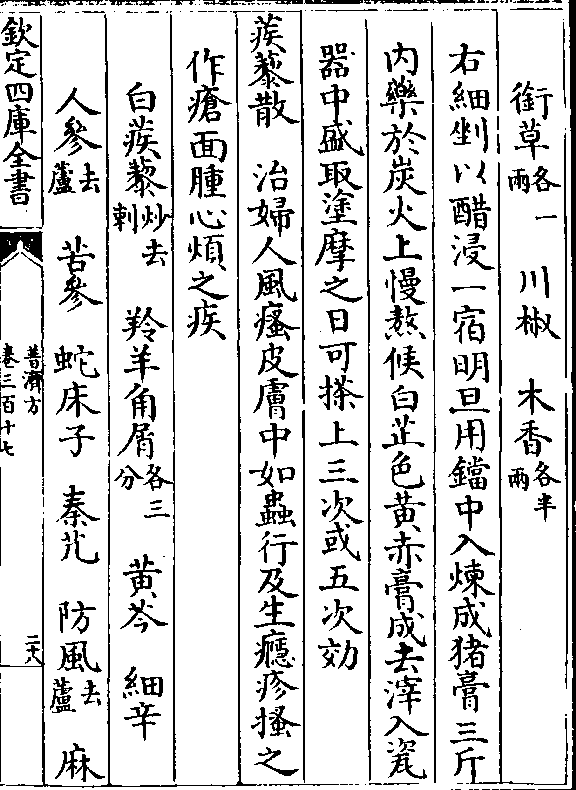 銜草各一兩 川椒 木香各半兩
右細剉以醋浸一宿明旦用鐺中入煉成猪膏三斤
内藥於炭火上慢熬候白芷色黄赤膏成去滓入瓷
器中盛取塗摩之日可搽上三次或五次効
蒺藜散 治婦人風瘙皮膚中如蟲行及生癮疹搔之
作瘡面腫心煩之疾
白蒺藜炒去刺 羚羊角屑各三分 黄芩 細辛
人參去蘆 苦參 蛇床子 秦艽 防風去蘆 麻
欽定四庫全書
普濟方
卷三百十七
二十八